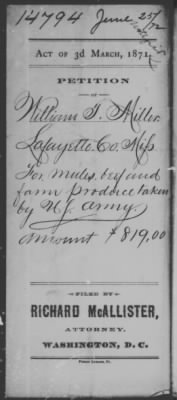 14794 June 25/72
ACT OF 3d MARCH, 1871.
PETITION
OF
William T. Miller
Lafayette Co. Miss
For mules, beef and
farm produce taken
by U.S. Army
Amount $819.00
FILED BY
RICHARD McALLISTER,
ATTORNEY,
WASHINGTON, D. C.